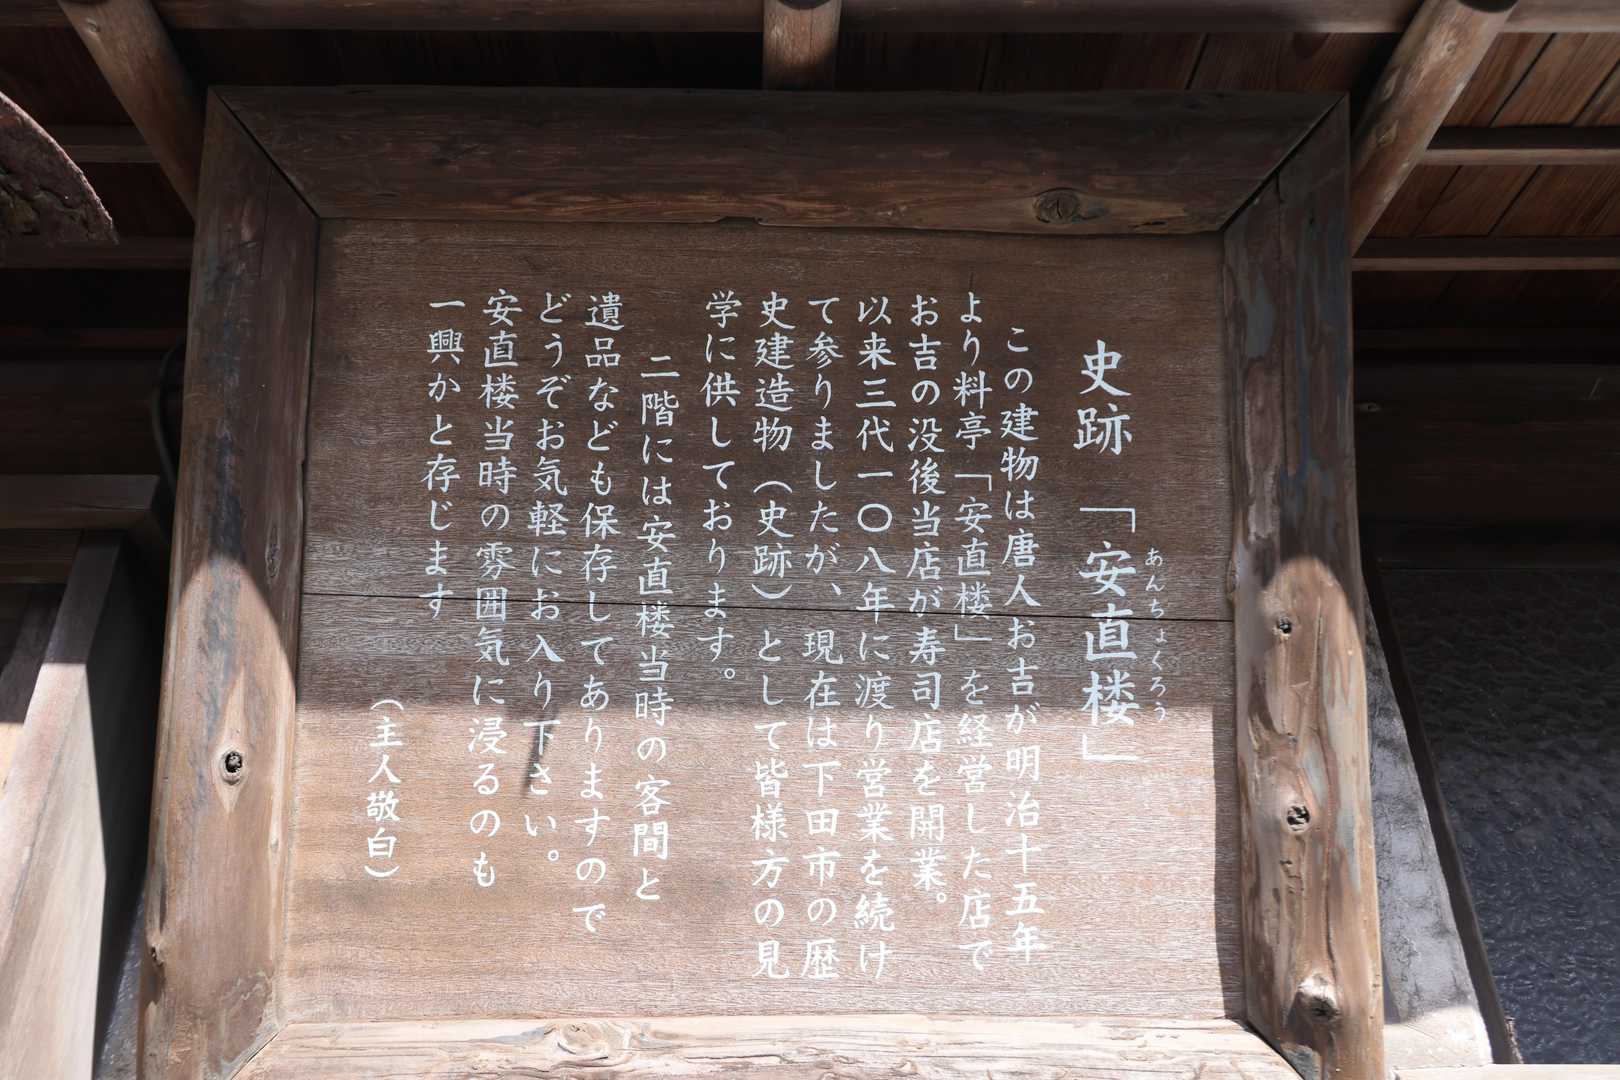 史跡 「安直楼」
あんちょくろう
この建物は唐人お吉が明治十五年
より料亭「安直楼」を経営した店で
お吉の没後当店が寿司店を開業。
以来三代一〇八年に渡り営業を続け
て参りましたが、現在は下田市の歴
史建造物(史跡)として皆様方の見
学に供しております。
二階には安直楼当時の客間と
遺品なども保存してありますので
どうぞお気軽にお入り下さい。
安直楼当時の雰囲気に浸るのも
一興かと存じます
(主人敬白)